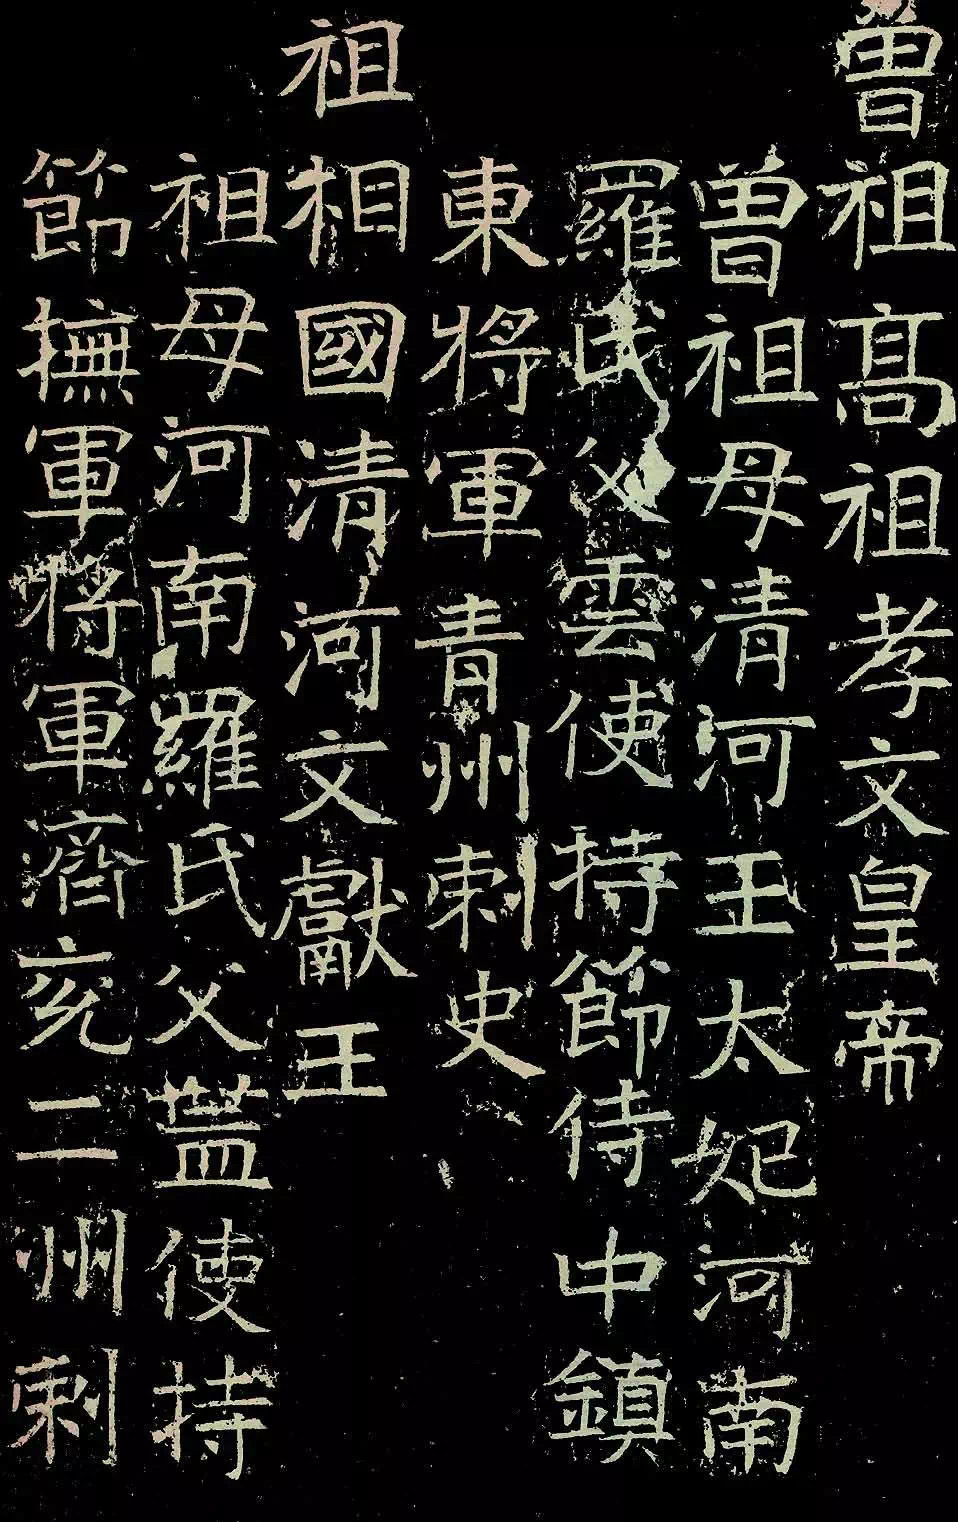 曾祖高祖孝文皇帝
曾祖母清河王太妃河南
羅氏父雲使持節侍中鎮
東將軍青州刺史
祖相國清河文獻王
祖母河南羅氏父蓋使持
節撫軍將軍濟兗二州刺